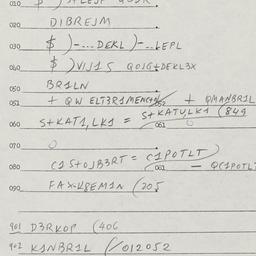 020 DIBREJM
030 $ )-...DEKL)-..LEPL
040 $ )VIJ1S QOIG+DEKL3X
050 BR1LN
051 + QW ELT3R1MEMCH 052 + QMANBR1L
060 S+KAT1,LK1 = S+KATU,LK1 (849
061
070 O
080 C1S+OJB3RT = C1POTLT) - QC1POTL
081
090 FAX-K8EM1N (205
901 D3RKOP (406
902 K1NBR1L (/012052